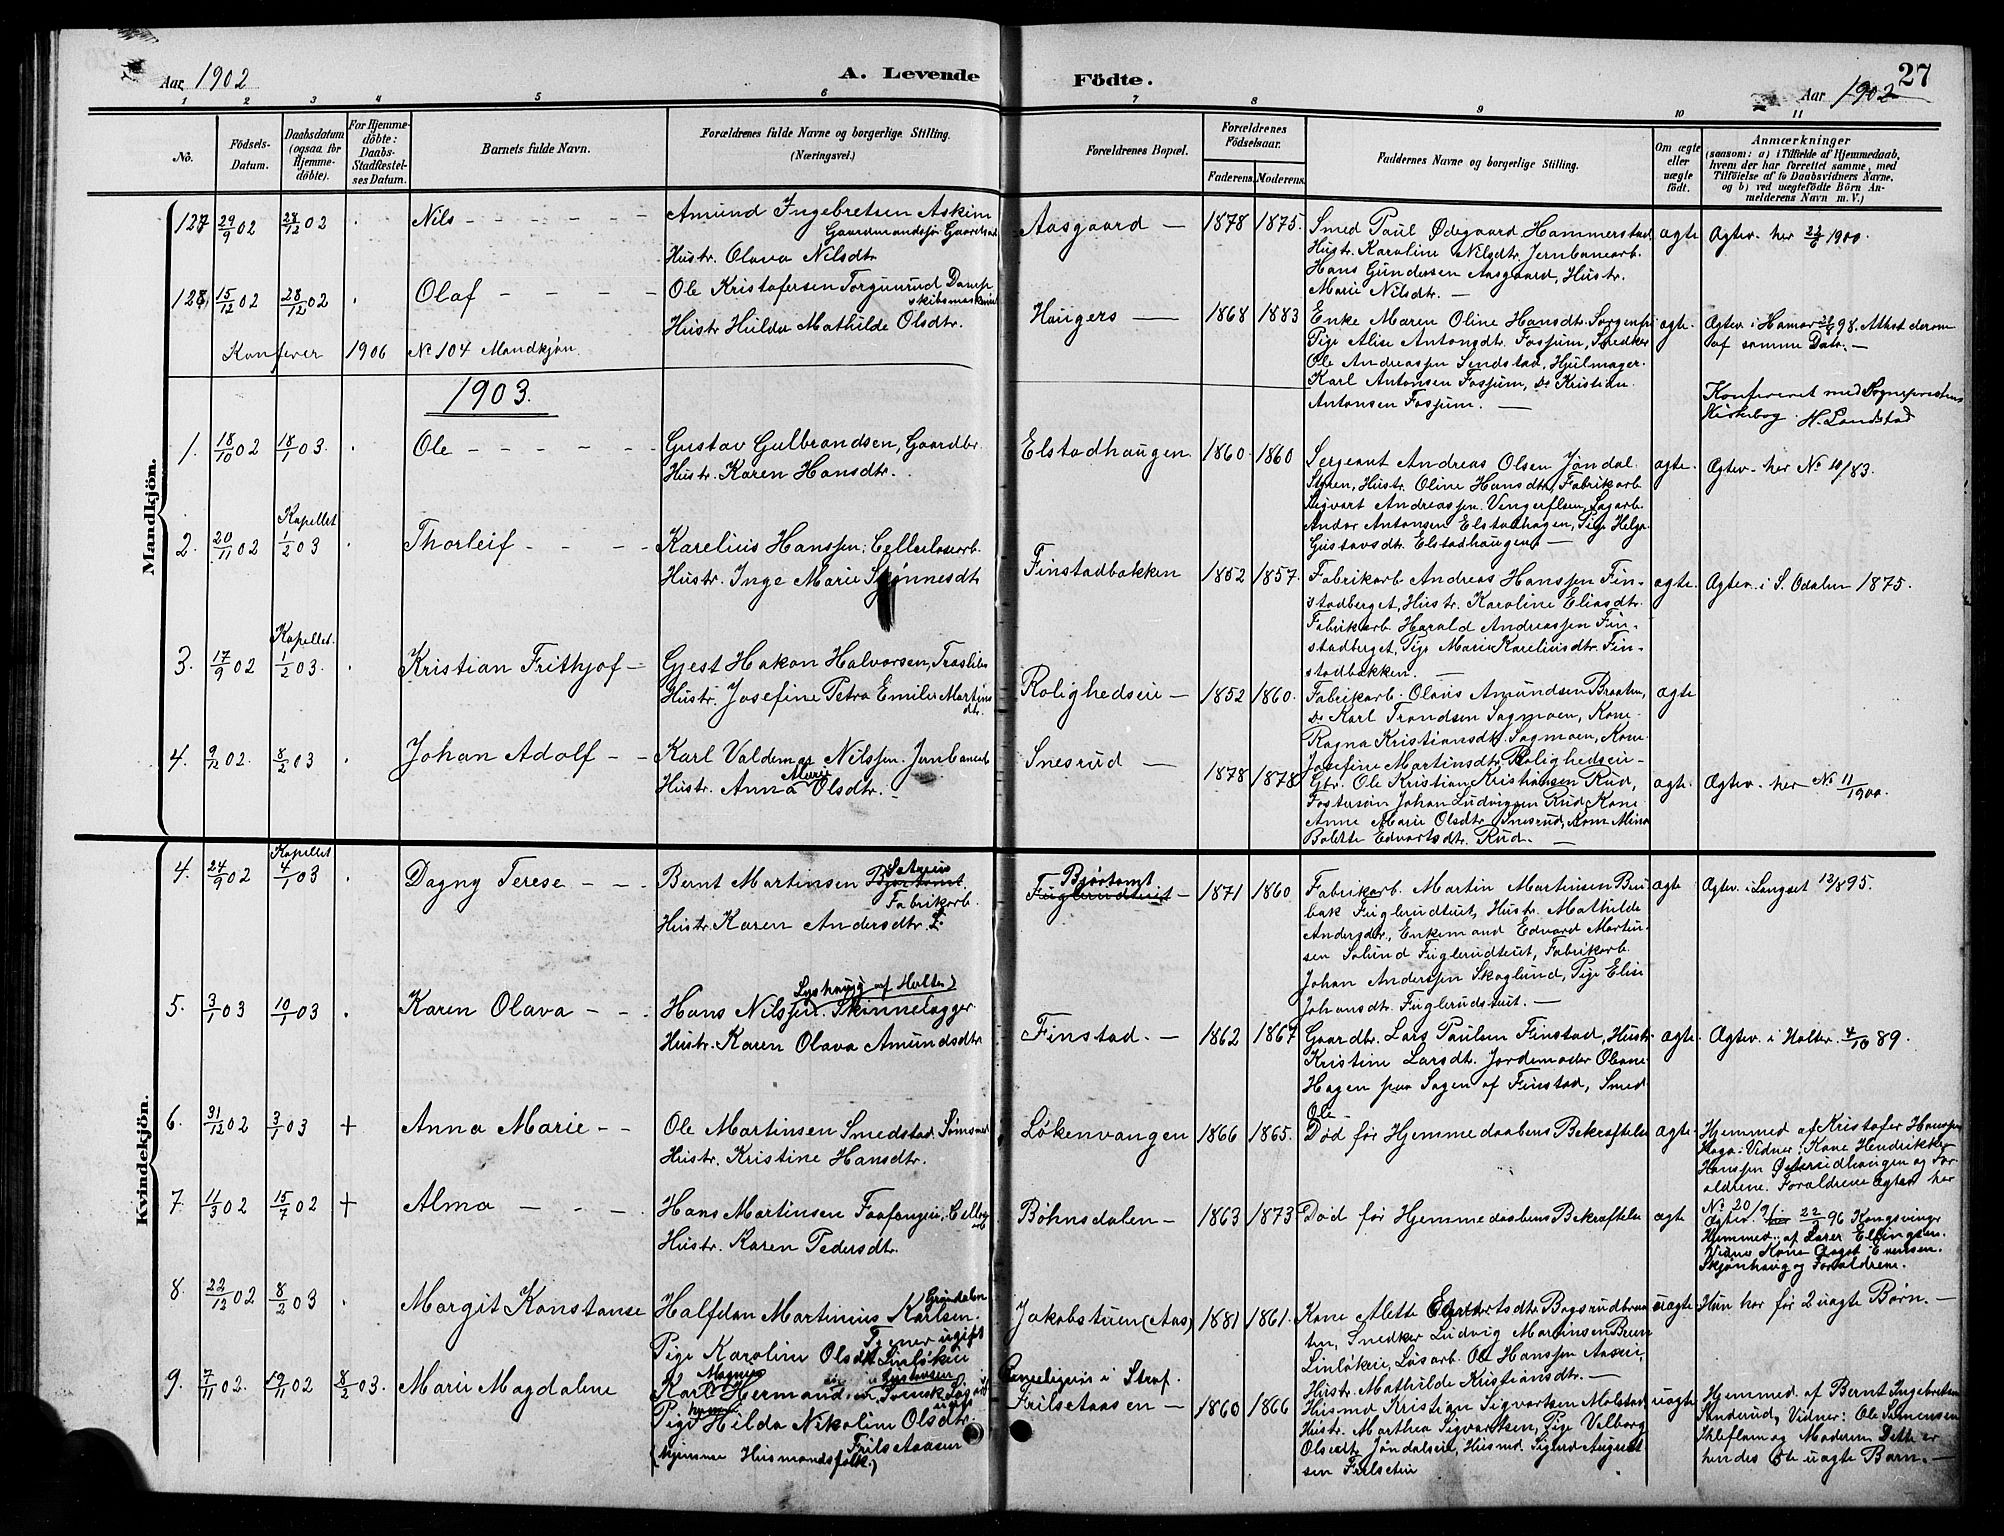 Aar 1902
A. Levende Födte.
27
Aar 1902
1 2 3 4 5 6 7 8 9 10 11
No.
Födsels-Datum.
Daabsdatum (ogsaa for Hjemme-döbte).
For Hjemme-döbte: Daabs-Stadfæstel-ses Datum.
Barnets fulde Navn.
Forældrenes fulde Navne og borgerlige Stilling.
(Næringsvei.)
Forældrenes Bopæl.
Forældrenes Födselsaar.
Faderens. Moderens.
Faddernes Navne og borgerlige Stilling.
Om ægte eller uægte födt.
Anmærkninger
(saasom: a) i Tilfælde af Hjemmedaab, hvem der har forrettet samme, med Tilföielse af to Daabsvidners Navne, og b) ved uægtefödte Börn An-melderens Navn m. V.)
Mandkjön.
127 29/9 02 28/12 02 Nils
Amund Ingebretsen Askim
Hustr. Olava Nilsdtr.
Aasgaard — 1878 1875.
Smed Paul Ødegaard Hammerstad
Hustr. Karoline Nilsdtr. Jernbanearb.
Hans Gundersen Aasgaard, Hustr.
Marie Nilsdtr. —
ægte Ægtev. her 1900.
128, 15/12 02 28/12 02 Olaf
Ole Kristofersen Torgunrud Damp
skibsmaskinist
Hustr. Hulda Mathilde Olsdtr.
Haugers — 1868 1883
Enke Maren Oline Hansdtr. Sorgenfri
Pige Alise Antonsdtr. Fossum, Snedker
Ole Andreassen Sendstad, Hjulmager
Karl Antonsen Fossum, Do Kristian
Antonsen Fossum. —
ægte. Ægtev. i Hamar 98. Attest derom
af samme Dato. —
Konferer 1906 No 104 Mandkjøn.
Konfereret med Sogneprestens
Kirkebog. H. Landstad
1903.
1. 18/10 02 18/1 03. Ole
Gustav Gulbrandsen, Gaardbr.
Hustr. Karen Hansdtr.
Elstadhaugen 1860. 1860
Sergeant Andreas Olsen Jøndal
Stuen, Hustr. Oline Hansdtr, Fabrikarb.
Sigvart Andreassen Vengerflsen, Sagarb.
Andor Antonsen Elstadhagen, Pige Helga
Gustavsdtr. Elstadhaugen —
ægte. Ægtev. her No 10/83.
2. 20/11 02 Kapellet 1/2 03 Thorleif
Karelius Hanssen, Cellulosearb.
Hustr. Inge Marie Sjønnesdtr
Finstadbakken 1852 1857.
Fabrikarb Andreas Hanssen Fin-
stadberget, Hustr. Karoline Eliasdtr.
Fabrikarb. Harald Andreassen Fin-
stadberget, Pige Marie Kareliusdtr. Fin-
stadbakken. —
ægte. Ægtev. i S. Odalen 1875.
3. 17/9 02 Kapellet. 1/2 03. Kristian Frithjof —
Gjest Hakon Halvorsen, Træsliber
Hustr. Josefine Petra Emilie Martins
dtr.
Rolighedseie — 1852 1860.
Fabrikarb. Olaus Amundsen Braaten,
Do Karl Trondsen Sagmoen, Kone
Ragna Kristiansdtr. Sagmoen, Kone
Josefine Martinsdtr. Rolighedseie —
ægte
4. 9/12 02. 8/2 03 Johan Adolf
Karl Valdemar Nilssen, Jernbanearb
Hustr. Anna Marie Olsdtr. —
Snesrud — 1878 1878
Gbr. Ole Kristian Kristiansen Rud,
Fostersøn Johan Ludvigsen Rud, Kone
Anne Marie Olsdtr. Snesrud, Kone Mina
Bolette Edvartsdtr. Rud. —
ægte. Ægtev. her No 11/1900.
Kvindekjön.
4. 24/9 02 Kapellet 4/1 03 Dagny Terese
Bernt Martinsen Sætreeie
Fabrikarb.
Hustr. Karen Andersdtr.
Bjørtomt
Fuglerudteiet — 1871 1860
Fabrikarb. Martin Martinsen Bru-
bak Fuglerudteiet, Hustr. Mathilde
Andersdtr., Enkemand Edvard Martin-
sen Solund Fuglerudteiet, Fabrikarb.
Johan Anderssen Skoglund, Pige Elise
Johansdtr. Fuglerudsteiet. —
ægte Ægtev. i Langset 13/895.
5. 3/1 03 10/1 03 Karen Olava
Lyshaug af Holter)
Hans Nilssen. Skinnelægger
Hustr. Karen Olava Amundsdtr
Finstad. — 1862 1867
Gaardbr. Lars Paulsen Finstad, Hustr.
Kristine Larsdtr. Jordemoder Oliane
Hagen paa Sagen af Finstad, Smed
Ole —
ægte Ægtev. i Holter. 4/10 89.
6. 31/12 02 3/1 03 + Anna Marie
Ole Martinsen Smedstad
Hustr. Kristine Hansdtr.
Løkenvangen 1866 1865.
Død før Hjemmedaabens Bekræftelse
ægte Hjemmed af Kristofer Hanssen
Haga. Vidner: Kone Hendrikke
Hanssen Østerudhaugen og For-
ældrene. Forældrene ægtev. her
No 20/91.
7. 11/3 02 15/7 02 + Alma
Hans Martinsen Faafangeie, Cellulose
arb
Hustr. Karen Pedersdtr.
Bøhnsdalen — 1863 1873
Død før Hjemmedaabens Bekræftelse
ægte Ægtev. her 96 Kongsvinger
Hjemmed. af Lærer Ellingsen.
Vidner Kone Evensen.
Skjønhaug og Forældrene.
8. 22/12 02 8/2 03 Margit Konstanse
Halfdan Martinius Karlsen Grindalen
Tjener ugift
Pige Karoline Olsdtr. Linløkeie
Jakobstuen (Aas) 1881 1861.
Kone Alette Edvartsdtr. Bogsrudbraa
ten, Snedker Ludvig Martinsen Breen
Linløkeie, Løsarb. Ole Hanssen Aaseie,
Hustr. Mathilde Kristiansdtr. —
uægte Hun har før 2 uægte Børn. —
9. 7/11 02. 19/11 02 8/2 03. Marie Magdalene
Karl Hermand Magnus
Pige Hilda Nikoline Olsdtr.
Frilsetaasen
(hjemme Husmandsfolk.)
Frilsetaasen — 1860 1866
Husmd Kristian Sigvartsen Molstad
Hustr. Marthea Sigvartsen, Pige Valborg
Olsdtr. Jøndalseie, Husmd. Sigurd August
sen Frilseteie
uægte Hjemmed. af Bernt Ingebretsen
Sanderud, Vidner: Ole Simensen
og Moderen Dette er
hendes 6te uægte Barn. —